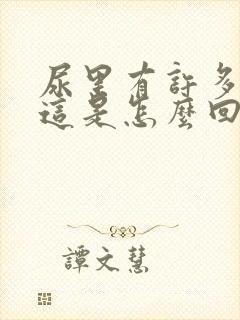 尿里有許多
這是怎麼回
譚文慧